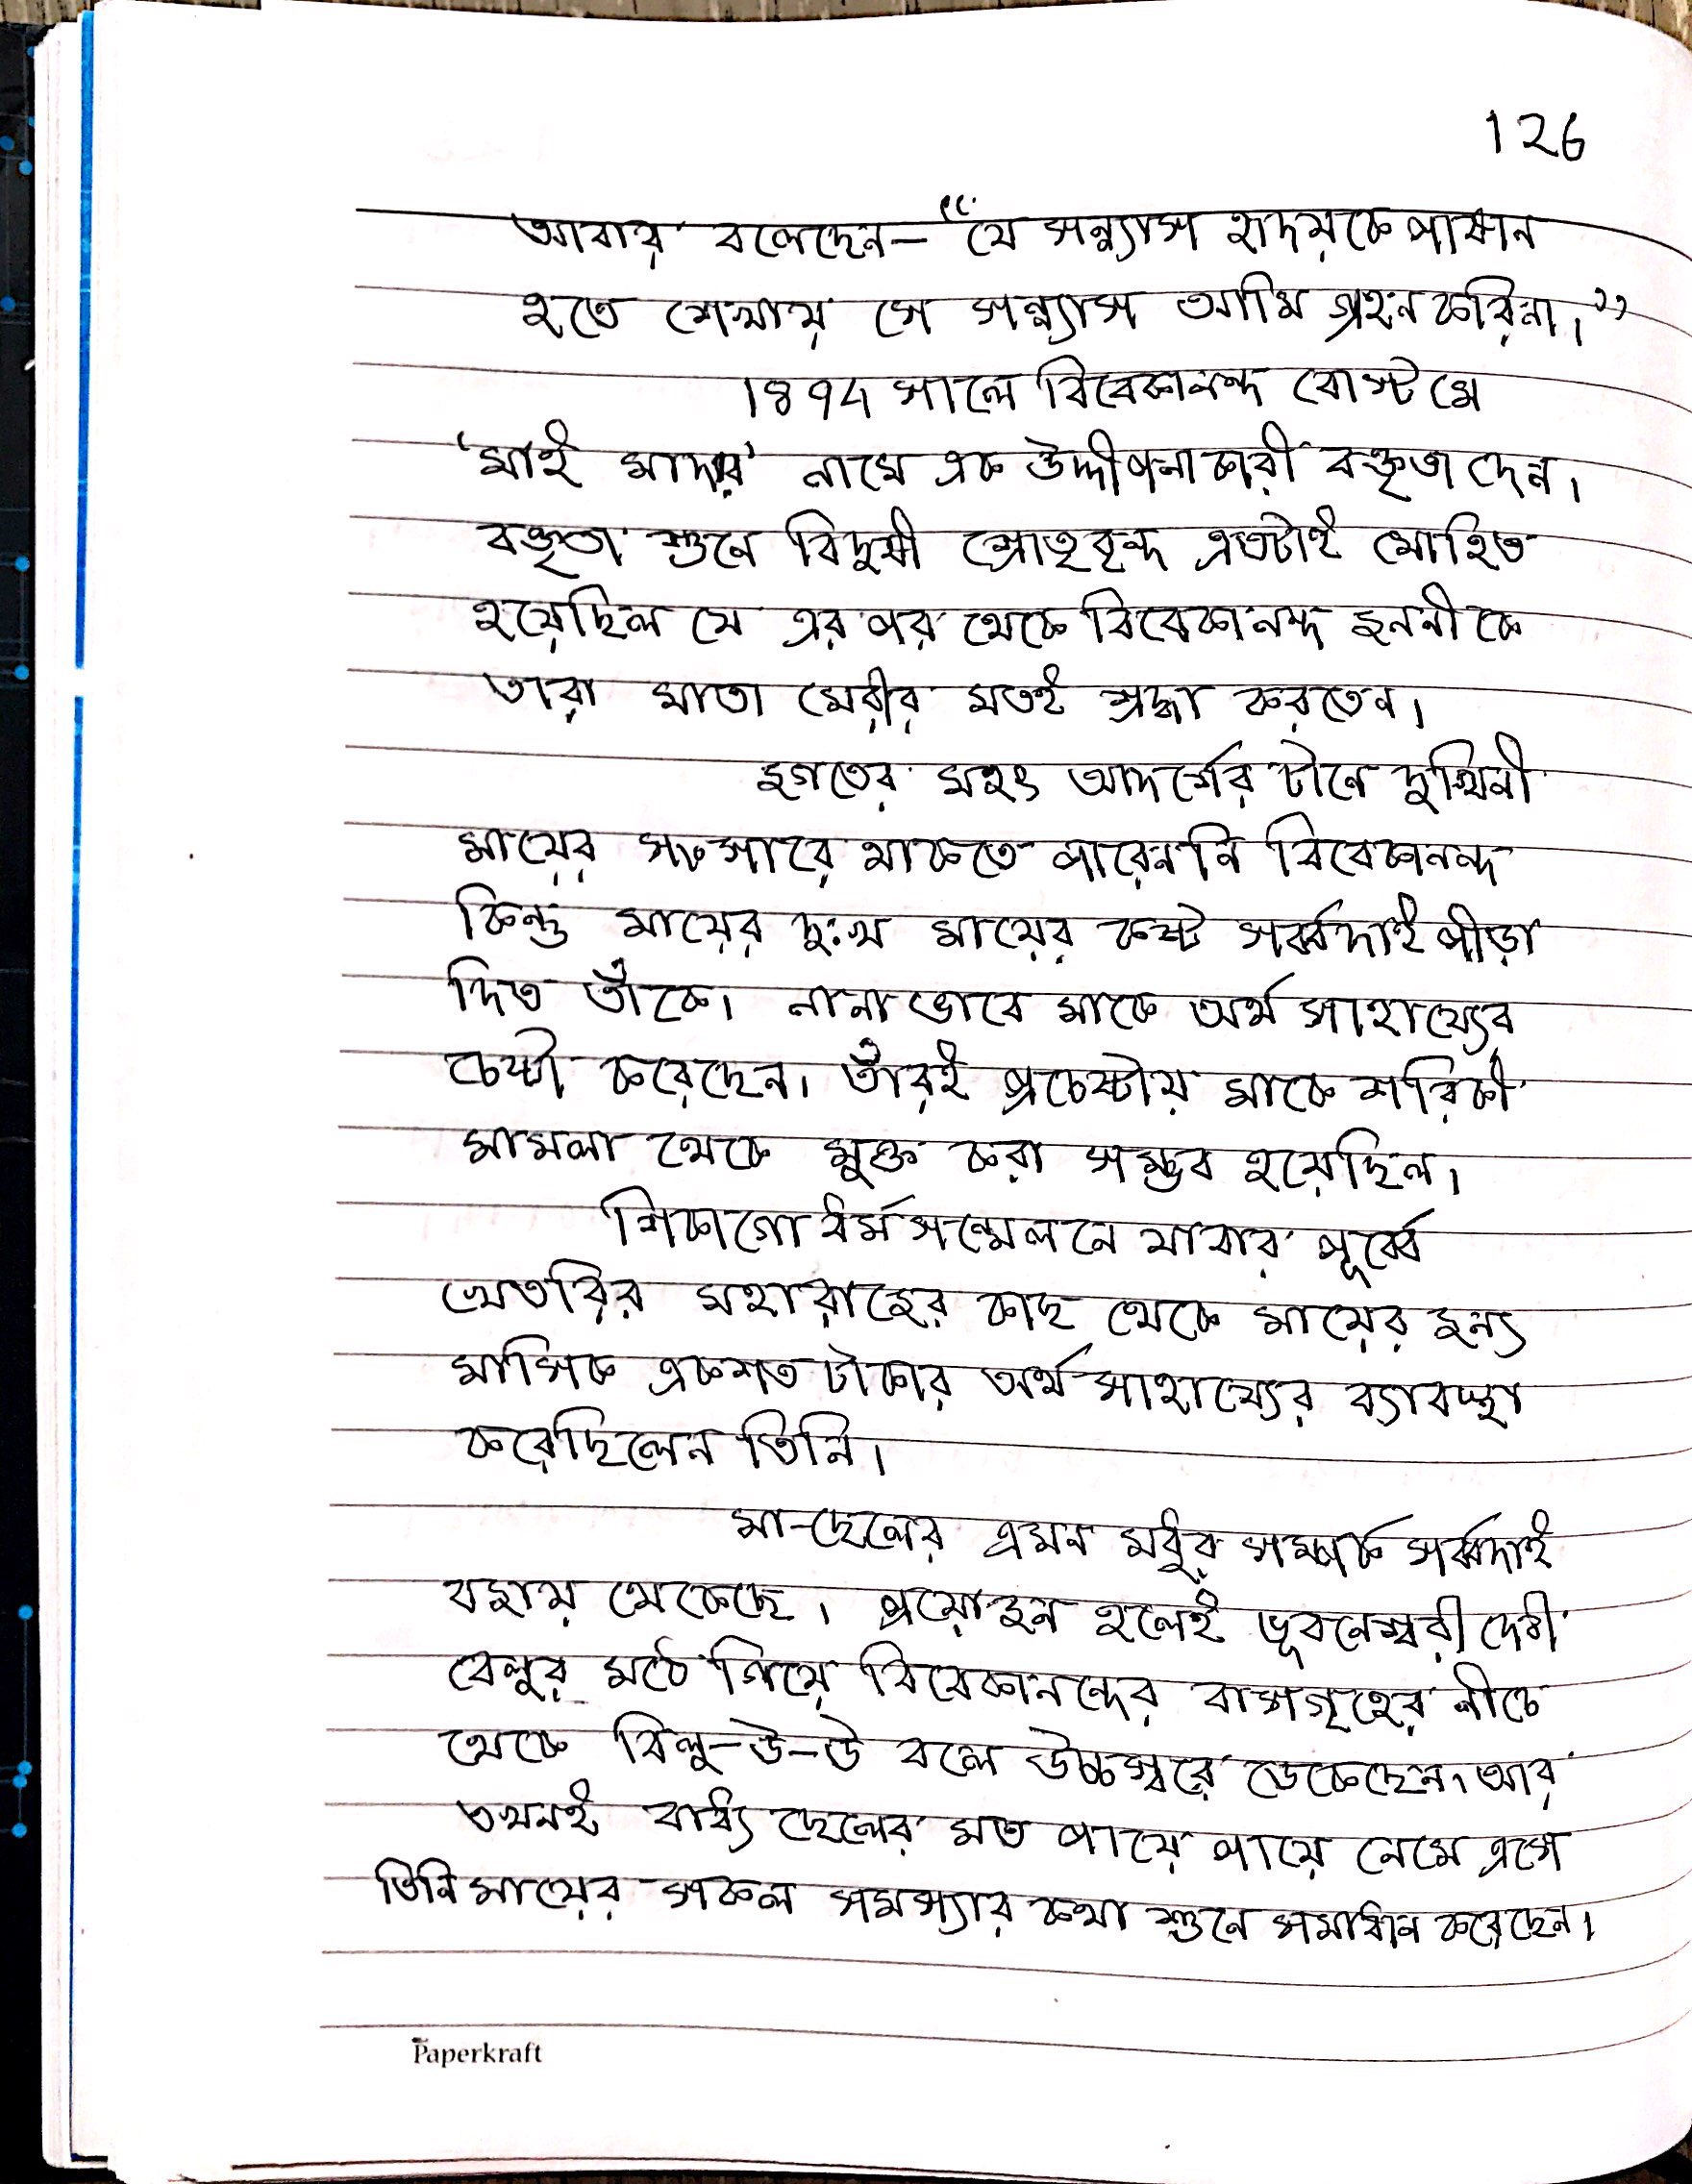 126
আবার বলেছেন— “যে সন্ন্যাস হৃদয়কে পাষান
হতে শেখায় সে সন্ন্যাস আমি গ্রহন করিনা।”
1894 সালে বিবেকানন্দ বোস্টমে
‘মাই মাদার’ নামে এক উদ্দীপনাকারী বক্তৃতা দেন।
বক্তৃতা শুনে বিদুষী শ্রোতৃবৃন্দ এতটাই মোহিত
হয়েছিল যে এর পর থেকে বিবেকানন্দ জননীকে
তারা মাতা মেরীর মতই শ্রদ্ধা করতেন।
জগতের মহৎ আদর্শের টানে দুখিনী
মায়ের সংসারে থাকতে পারেননি বিবেকানন্দ
কিন্তু মায়ের দুঃখ মায়ের কষ্ট সর্ব্বদাই পীড়া
দিত তাঁকে। নানা ভাবে মাকে অর্থ সাহায্যের
চেষ্টা করেছেন। তাঁরই প্রচেষ্টায় মাকে শরিকী
মামলা থেকে মুক্ত করা সম্ভব হয়েছিল।
শিকাগো ধর্মসম্মেলনে যাবার পূর্ব্বে
খেতরির মহারাজের কাছ থেকে মায়ের জন্য
মাসিক একশত টাকার অর্থ সাহায্যের ব্যাবস্থা
করেছিলেন তিনি।
মা-ছেলের এমন মধুর সম্পর্ক সর্ব্বদাই
বজায় থেকেছে। প্রয়োজন হলেই ভূবনেশ্বরী দেবী
বেলুর মঠে গিয়ে বিবেকানন্দের বাসগৃহের নীচে
থেকে বিলু-উ-উ বলে উচ্চস্বরে ডেকেছেন। আর
তখনই বাধ্য ছেলের মত পায়ে পায়ে নেমে এসে
তিনি মায়ের সকল সমস্যার কথা শুনে সমাধান করেছেন।
Paperkraft